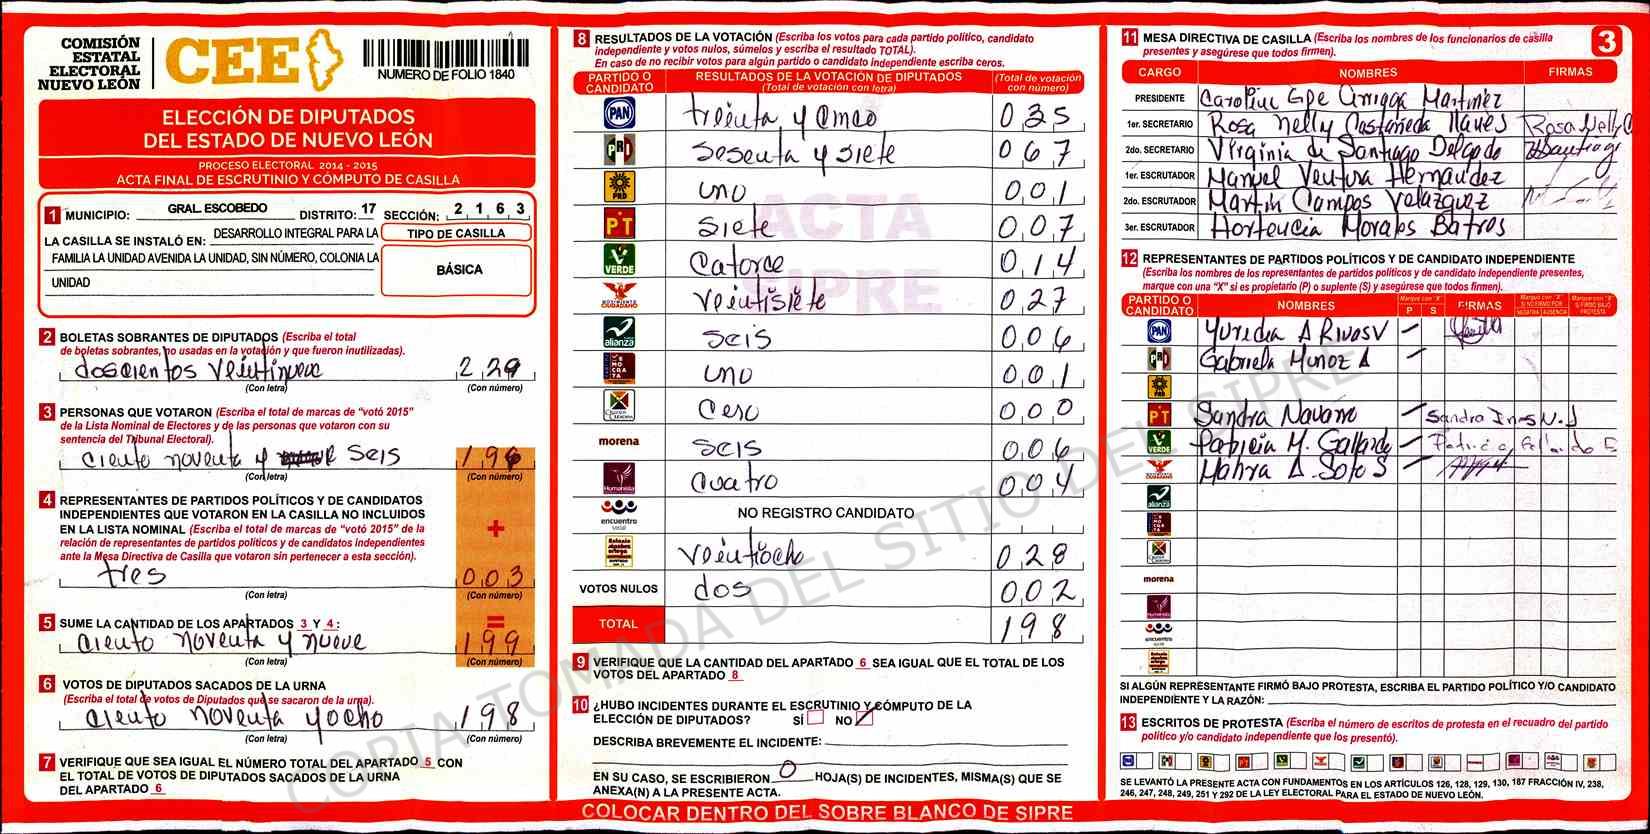 COMISIÓN
ESTATAL
ELECTORAL
NUEVO LEÓN
CEE
NUMERO DE FOLIO 1840
ELECCIÓN DE DIPUTADOS
DEL ESTADO DE NUEVO LEÓN
PROCESO ELECTORAL 2014 - 2015
ACTA FINAL DE ESCRUTINIO Y CÓMPUTO DE CASILLA
1 MUNICIPIO: GRAL. ESCOBEDO DISTRITO: 17 SECCIÓN: 2 1 6 3
LA CASILLA SE INSTALÓ EN: DESARROLLO INTEGRAL PARA LA
FAMILIA LA UNIDAD AVENIDA LA UNIDAD, SIN NÚMERO, COLONIA LA
UNIDAD
TIPO DE CASILLA
BÁSICA
2 BOLETAS SOBRANTES DE DIPUTADOS (Escriba el total
de boletas sobrantes, no usadas en la votación y que fueron inutilizadas).
doscientos veintinueve 2 2 9
(Con letra) (Con número)
3 PERSONAS QUE VOTARON (Escriba el total de marcas de "votó 2015"
de la Lista Nominal de Electores y de las personas que votaron con su
sentencia del Tribunal Electoral).
ciento noventa y seis 1 9 6
(Con letra) (Con número)
4 REPRESENTANTES DE PARTIDOS POLÍTICOS Y DE CANDIDATOS
INDEPENDIENTES QUE VOTARON EN LA CASILLA NO INCLUIDOS
EN LA LISTA NOMINAL (Escriba el total de marcas de "votó 2015" de la
relación de representantes de partidos políticos y de candidatos independientes
ante la Mesa Directiva de Casilla que votaron sin pertenecer a esta sección).
+
tres 0 0 3
(Con letra) (Con número)
=
5 SUME LA CANTIDAD DE LOS APARTADOS 3 Y 4:
ciento noventa y nueve 1 9 9
(Con letra) (Con número)
6 VOTOS DE DIPUTADOS SACADOS DE LA URNA
(Escriba el total de votos de Diputados que se sacaron de la urna).
ciento noventa y ocho 1 9 8
(Con letra) (Con número)
7 VERIFIQUE QUE SEA IGUAL EL NÚMERO TOTAL DEL APARTADO 5 CON
EL TOTAL DE VOTOS DE DIPUTADOS SACADOS DE LA URNA
DEL APARTADO 6
8 RESULTADOS DE LA VOTACIÓN (Escriba los votos para cada partido político, candidato
independiente y votos nulos, súmelos y escriba el resultado TOTAL).
En caso de no recibir votos para algún partido o candidato independiente escriba ceros.
PARTIDO O CANDIDATO
RESULTADOS DE LA VOTACIÓN DE DIPUTADOS
(Total de votación con letra)
(Total de votación con número)
PAN treinta y cinco 0 3 5
PRI sesenta y siete 0 6 7
PRD uno 0 0 1
PT siete 0 0 7
VERDE catorce 0 1 4
MOVIMIENTO CIUDADANO veintisiete 0 27
alianza seis 0 0 6
DEMOCRATA uno 0 0 1
cero 0 0 0
morena seis 0 0 6
Humanista cuatro 0 0 4
encuentro social NO REGISTRO CANDIDATO
veintiocho 0 2 8
VOTOS NULOS dos 0 0 2
TOTAL 1 9 8
ACTA
SIPRE
9 VERIFIQUE QUE LA CANTIDAD DEL APARTADO 6 SEA IGUAL QUE EL TOTAL DE LOS
VOTOS DEL APARTADO 8
10 ¿HUBO INCIDENTES DURANTE EL ESCRUTINIO Y CÓMPUTO DE LA
ELECCIÓN DE DIPUTADOS? SÍ NO
DESCRIBA BREVEMENTE EL INCIDENTE:
EN SU CASO, SE ESCRIBIERON 0 HOJA(S) DE INCIDENTES, MISMA(S) QUE SE
ANEXA(N) A LA PRESENTE ACTA.
COLOCAR DENTRO DEL SOBRE BLANCO DE SIPRE
11 MESA DIRECTIVA DE CASILLA (Escriba los nombres de los funcionarios de casilla
presentes y asegúrese que todos firmen).
3
CARGO NOMBRES FIRMAS
PRESIDENTE Carolina Gpe Arriaga Martinez
1er. SECRETARIO Rosa Nelly Castañeda Naves Rosa Nelly C
2do. SECRETARIO Virginia de Santiago Delgado
1er. ESCRUTADOR Manuel Ventura Hernandez
2do. ESCRUTADOR Martin Campos Velazquez
3er. ESCRUTADOR Hortencia Morales Batres
12 REPRESENTANTES DE PARTIDOS POLÍTICOS Y DE CANDIDATO INDEPENDIENTE
(Escriba los nombres de los representantes de partidos políticos y de candidato independiente presentes,
marque con una "X" si es propietario (P) o suplente (S) y asegúrese que todos firmen).
PARTIDO O CANDIDATO NOMBRES Marque con "X" P S FIRMAS Marque con "X" SI NO FIRMÓ POR NEGATIVA AUSENCIA Marque con "X" SI FIRMÓ BAJO PROTESTA
PAN Yuredia A Rivas V
PRI Gabriela Muñoz A
PRD
PT Sandra Navarro Sandra Ines N. J
VERDE Patricia M. Gallardo
Mahra A. Soto S
alianza
morena
encuentro
SI ALGÚN REPRESENTANTE FIRMÓ BAJO PROTESTA, ESCRIBA EL PARTIDO POLÍTICO Y/O CANDIDATO
INDEPENDIENTE Y LA RAZÓN:
13 ESCRITOS DE PROTESTA (Escriba el número de escritos de protesta en el recuadro del partido
político y/o candidato independiente que los presentó).
SE LEVANTÓ LA PRESENTE ACTA CON FUNDAMENTOS EN LOS ARTÍCULOS 126, 128, 129, 130, 187 FRACCIÓN IV, 238,
246, 247, 248, 249, 251 Y 292 DE LA LEY ELECTORAL PARA EL ESTADO DE NUEVO LEÓN.
COPIA TOMADA DEL SITIO DEL SIPRE